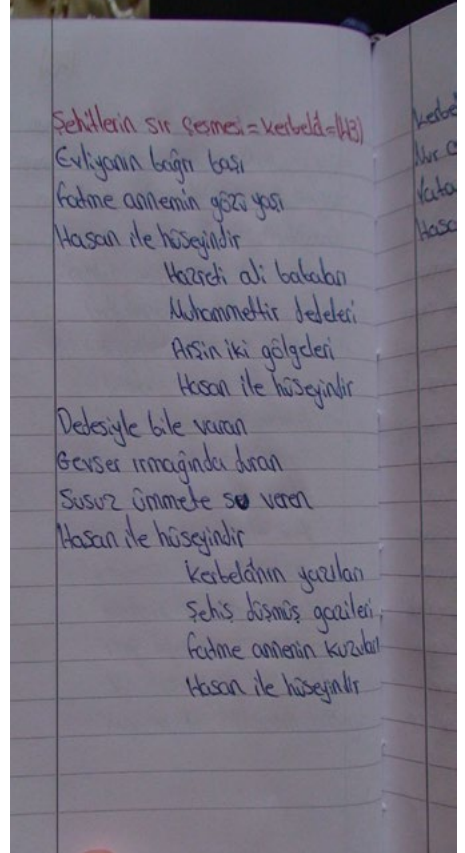 Şehitlerin sır çeşmesi = kerbelâ = (43)
Evliyanın bağrı başı
fatme annemin gözü yaşı
Hasan ile hüseyindir
Hazreti ali babaları
Muhammettir dedeleri
Arşin iki gölgeleri
Hasan ile hüseyindir
Dedesiyle bile varan
Gevser ırmağında duran
Susuz ümmete su veren
Hasan ile hüseyindir
Kerbelânın yazıları
Şehiş düşmüş gazileri
fatme annenin kuzuları
Hasan ile hüseyindir